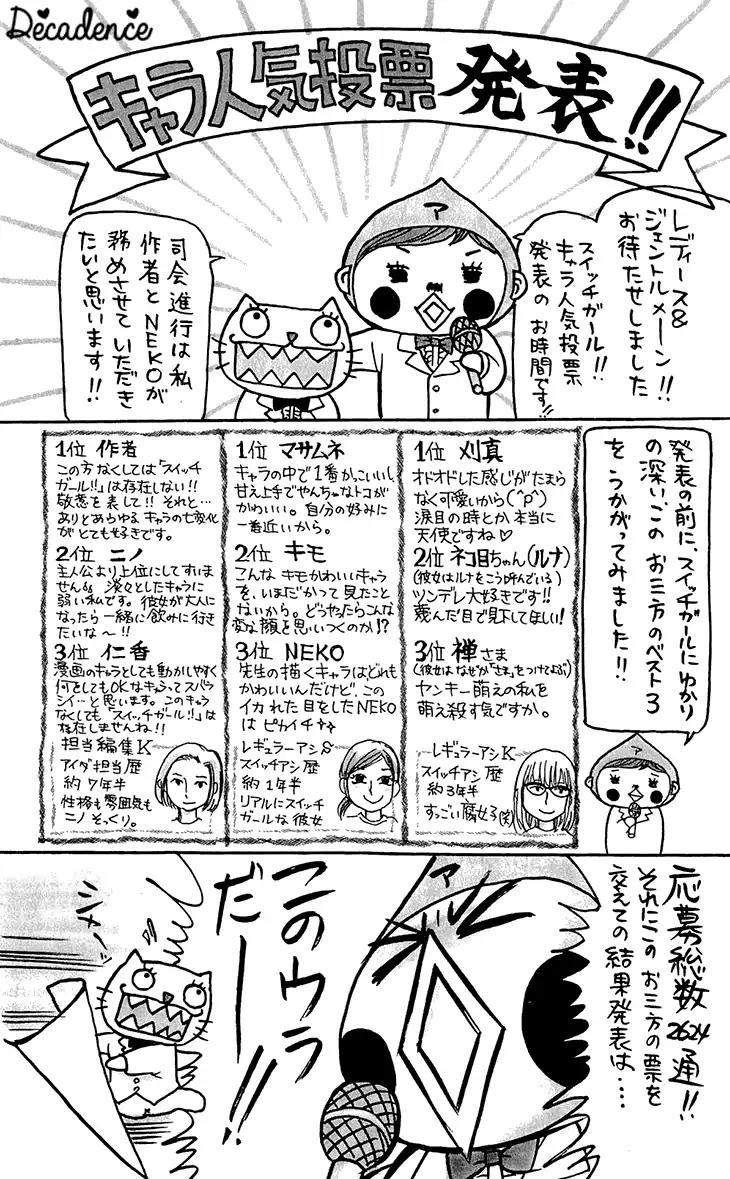 Decadence
キャラ人気投票 発表!!
レディース&
ジェントルメーン!!
お待たせしました
スイッチガール!!
キャラ人気投票
発表の お時間です!!
ア
司会進行は 私
作者と NEKOが
務めさせて いただき
たいと思います!!
発表の前に、スイッチガールにゆかり
の深い、この お三方のベスト3
を うかがってみました!!
1位 刈真
オドオドした感じがたまら
なく可愛いから(^p^)
涙目の時とか、本当に
天使ですね♡
2位 ネコ目ちゃん(ルナ)
(彼女はルナをこう呼んでいる)
ツンデレ大好きです!!
蔑んだ目で見下してほしい!
3位 禅さま
(彼女はなぜか「さま」をつけてよぶ)
ヤンキー萌えの私を
萌え殺す気ですか。
レギュラーアシK
スイッチアシ歴
約3年半
すっごい腐女子(笑)
1位 マサムネ
キャラの中で1番かっこいいし、
甘え上手でやんちゃなトコが
かわいい。自分の好みに
一番近いから。
2位 キモ
こんな キモかわいいキャラ
を、いまだかつて見たこと
ないから。どうやったらこんな
変な顔を思いつくのか!?
3位 NEKO
先生の描くキャラはどれも
かわいいんだけど、この
イカれた目をしたNEKO
は ピカイチ
レギュラーアシS
スイッチアシ歴
約1年半
リアルにスイッチ
ガールな彼女
1位 作者
この方なくしては「スイッチ
ガール!!」は存在しない!!
敬意を表して!! それと…
ありとあらゆるキャラの七変化
がとても好きです。
2位 ニノ
主人公より上位にしてすいま
せん 淡々としたキャラに
弱い私です。彼女が大人に
なったら一緒に飲みに行き
たいな〜!!
3位 仁香
漫画のキャラとしても動かしやすく
何をしてもOKなキャラってスバラ
シイ…と思います。このキャラ
なくしても「スイッチガール!!」は
存在しませんね!!
担当編集K
アイダ担当歴
約7年半
性格も雰囲気も
ニノ そっくり。
応募総数2624通!!
それにこの お三方の票を
交えての 結果発表は‥‥
ア
このウラ
だーー!!